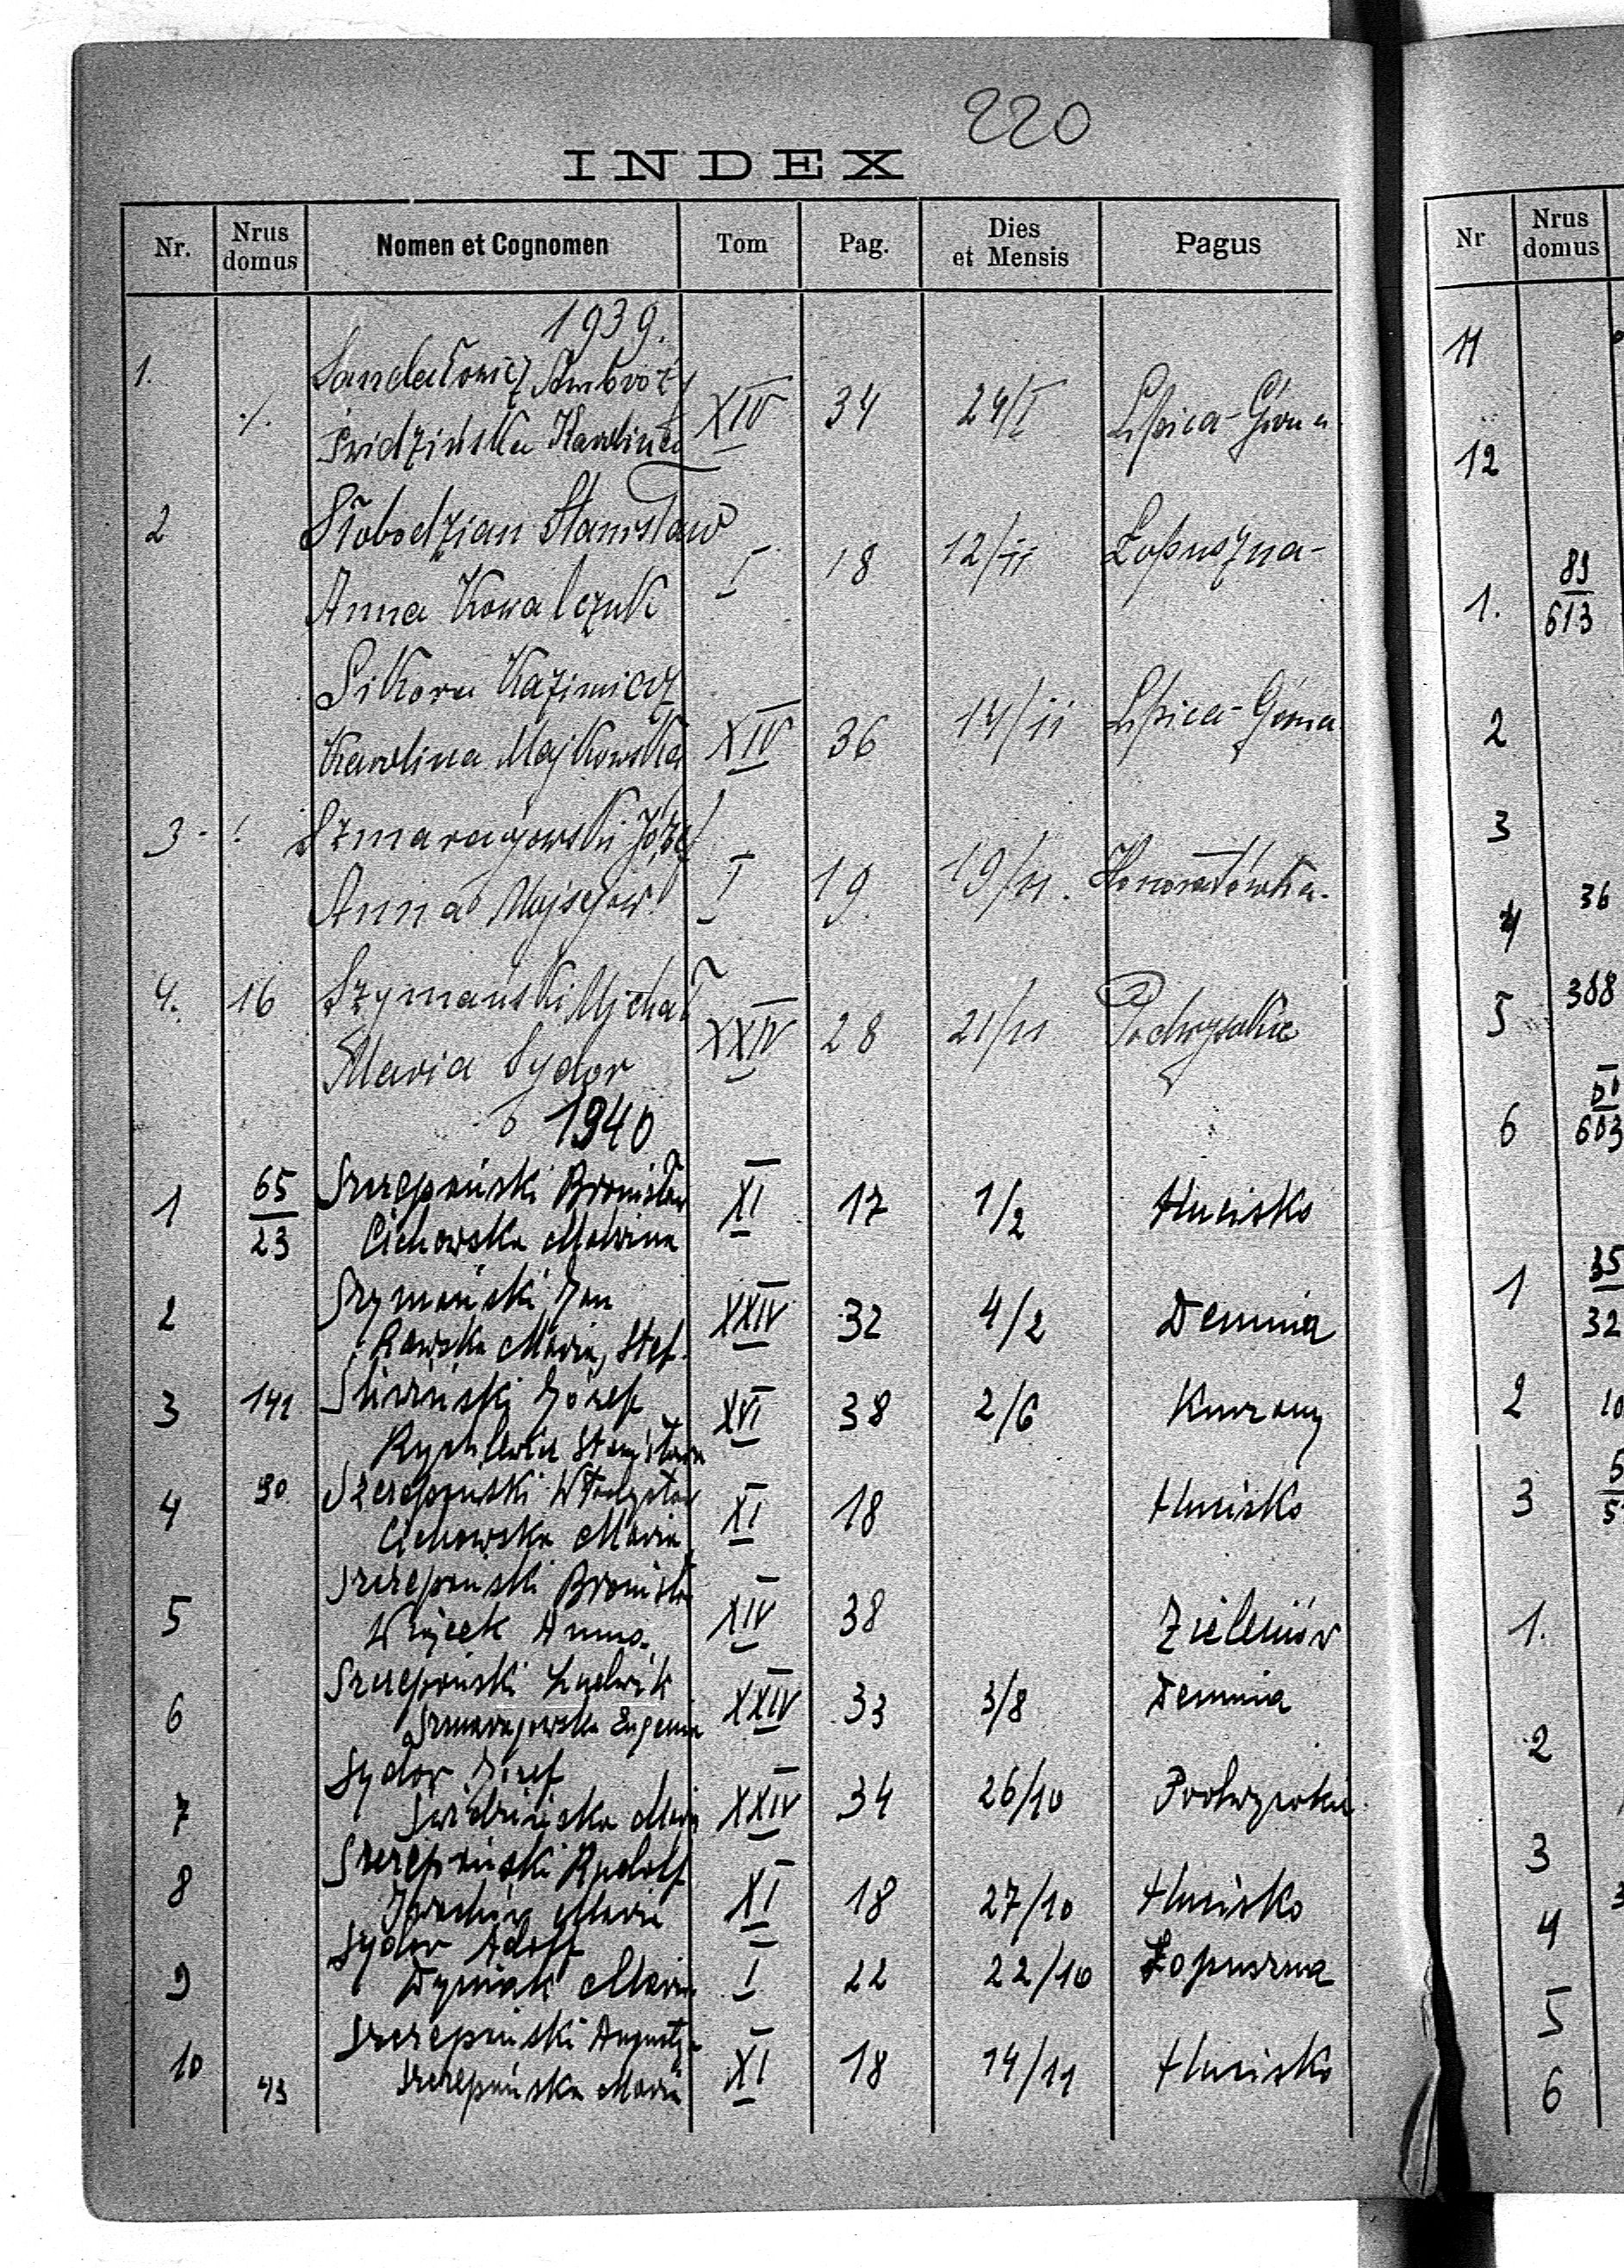 220
INDEX
Nr. Nrus domus Nomen et Cognomen Tom Pag. Dies et Mensis Pagus
1939.
1. ·/. Sandałowicz Ambroż XIV 34 24/I Lipica-Górna
Świdzińska Karolina
2 Słobodzian Stanisław I 18 12/II Łopuszna-
Anna Kowalczuk
Sikora Kazimierz
Karolina Majkowska XIV 36 14/II Lipica-Górna
3- Szmaragowski Józef
Anna Mojsejów I 19 19/II. Honoratówka.
4. 16 Szymański Michał XXIV 28 21/II Podwysokie
Maria Sydor
1940
1 65/23 Szczepański Bronisław XI 17 1/2 Hucisko
Cichowska Malwina
2 Szymański Jan XXIV 32 4/2 Demnia
Rawska Maria, Stef.
3 141 Śliwiński Józef XVI 38 2/6 Kurzany
Stanisława
4 90 Szczepański Władysław XI 18 Hucisko
Cichowska Maria
5 Szczepański Bronisław XIV 38 Zielenów
Wójcek Anna
6 Szczepański Ludwik XXIV 33 3/8 Demnia
Szmaragowska Eugenia
7 Sydor Józef XXIV 34 26/10 Podwysokie
Świdzińska Maria
8 Szczepański Rudolf XI 18 27/10 Hucisko
Maria
9 Sydor Adolf I 22 22/10 Łopuszna
Maria
10 43 Szczepański August XI 18 14/11 Hucisko
Szczepańska Maria
Nr Nrus domus
11
12
1. 89/613
2
3
4 36
5 388
6 603
1 35/32
2 10
3
1.
2
3
4
5
6